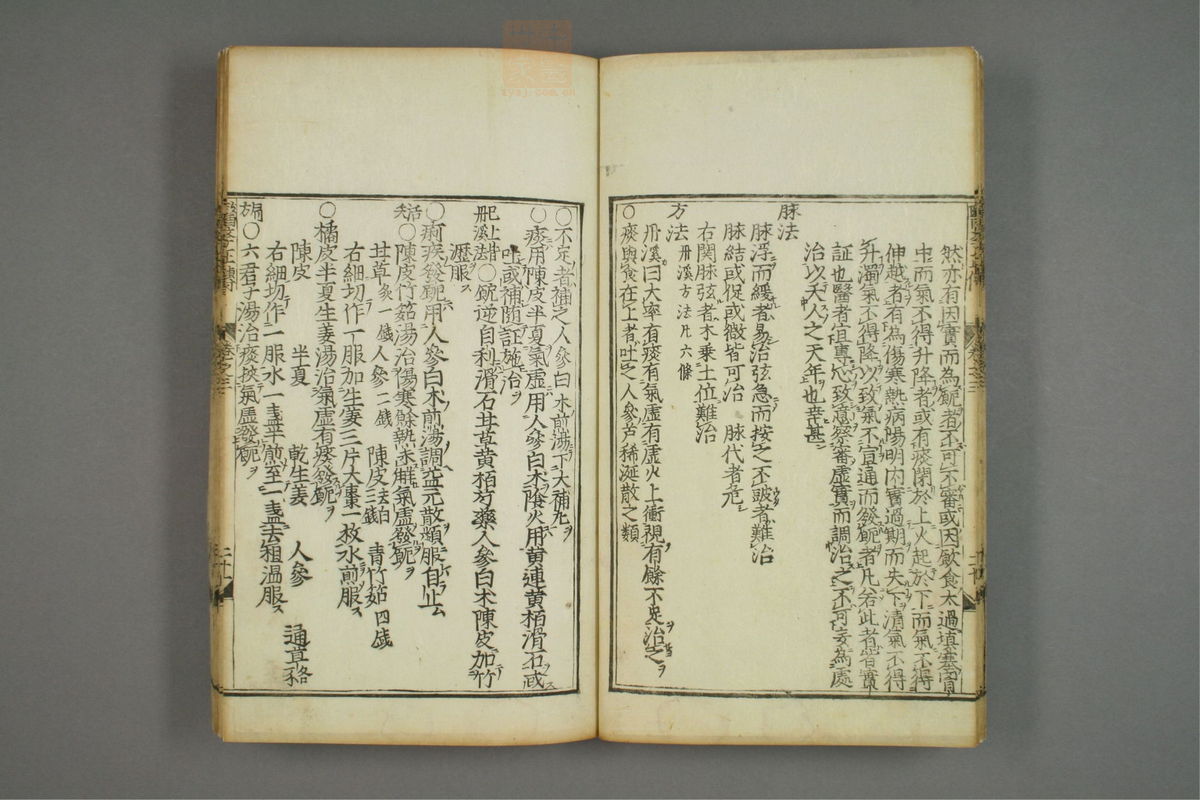 然亦有因實而為䀲者不可不審或因飲食太過填塞胸
中而氣不得升降者或有痰閉於上火起於下而氣不得
伸越者有為傷寒熱病陽明内實過期而失下清氣不得
升濁氣不得降以致氣不宣通而發䀲者凡若此者皆實
証也醫者宜專心致意察審虚實而調治之不可妄為處
治以夭人之天年也幸甚
脉法
脉浮而緩者易治弦急而按之不皷者難治
脉結或促或微皆可治 脉代者危
右関脉弦者木乗土位難治
方法 丹溪方法凡六條
丹溪曰大率有痰有氣虚有火上衝視有餘不足治之
○痰與食在上者吐之人參芦稀涎散之類
○不足者補之人參白术煎湯下大補丸
○痰用陳皮半夏氣虚用人參白术降火用黄連黄栢滑石或
吐或補随証施治
丹溪活 ○䀲逆自利滑石甘草黄栢芍藥人參白术陳皮加竹
瀝服
○痢疾發䀲用人參白术煎湯調益元散頻服自止
活 ○陳皮竹茹湯治傷寒餘熱未解氣虚發䀲
甘草炙一錢 人參二錢 陳皮去白三錢 青竹茹四錢
右細切作一服加生姜三片大棗一枚水煎服
○橘皮半夏生姜湯治氣虚有痰發䀲
陳皮 半夏 乾生姜 人參 通草各
右細切作一服水一盞半煎至一盞去租温服
局方 ○六君子湯治痰挾氣虚發䀲